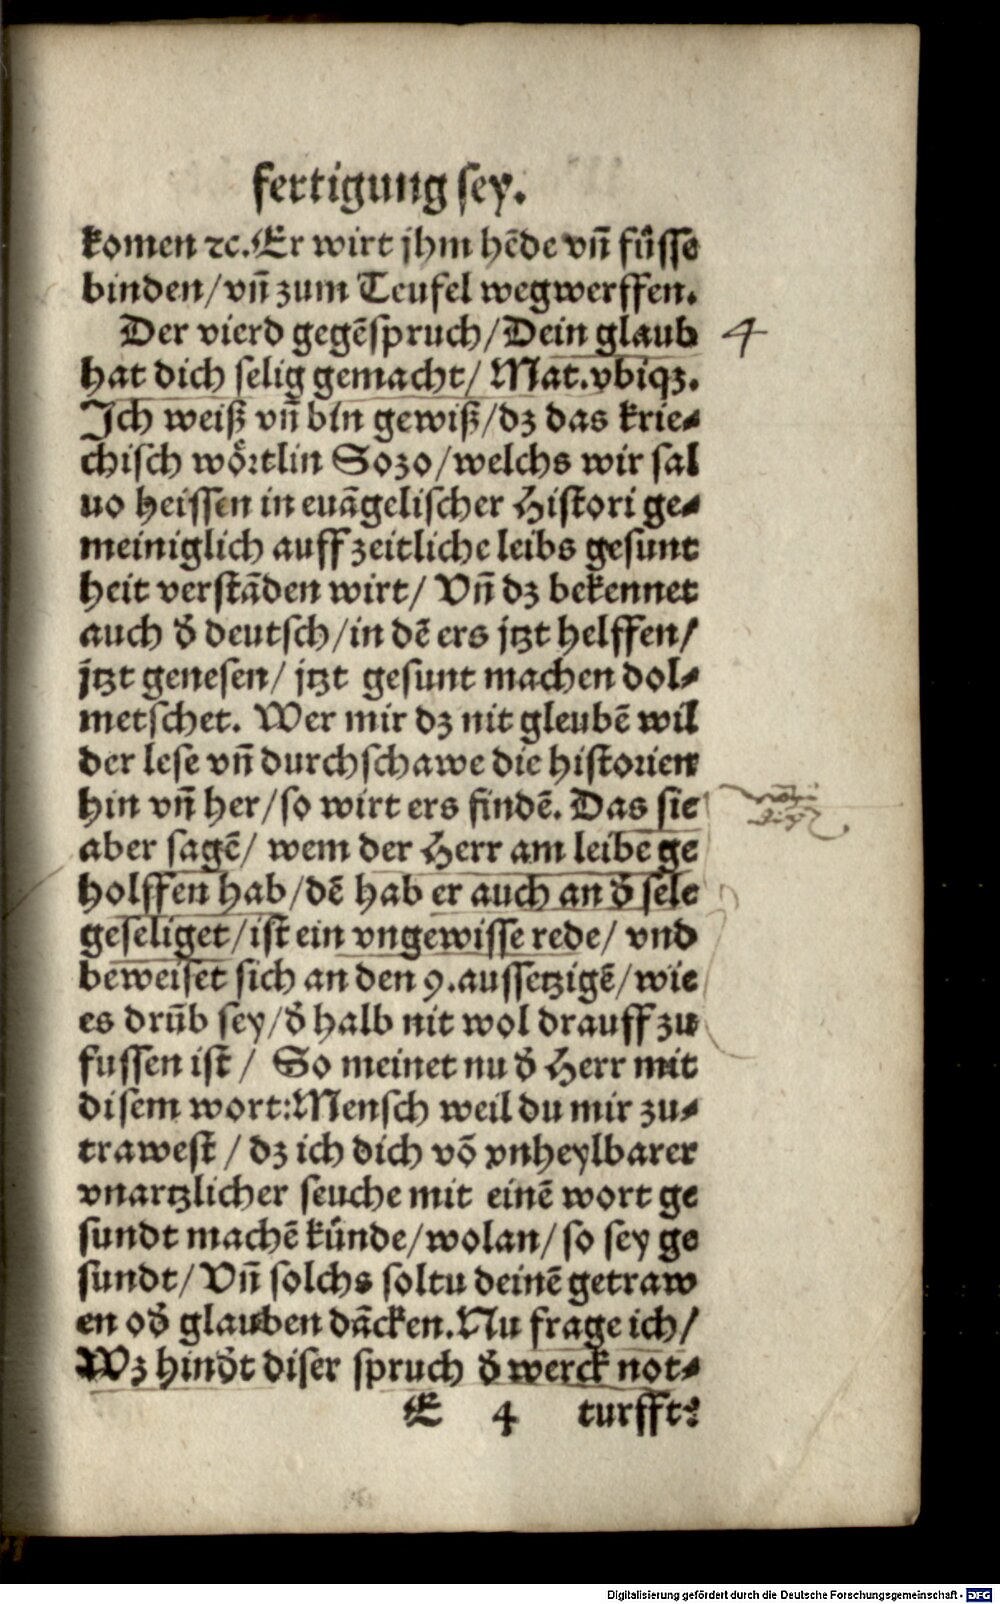 fertigung sey.
komen ⁊c. Er wirt jhm hēde vn̄ fůsse
binden/ vn̄ zum Teufel wegwerffen.
Der vierd gegēspruch/ Dein glaub 4
hat dich selig gemacht/ Mat. vbiqꝫ.
Ich weiß vn̄ bin gewiß/ dz das krie⸗
chisch wőrtlin Sozo/ welchs wir sal
uo heissen in euāgelischer Histori ge⸗
meiniglich auff zeitliche leibs gesunt
heit verstāden wirt/ Vn̄ dz bekennet
auch d̄ deutsch/ in dē ers jtzt helffen/
jtzt genesen/ jtzt gesunt machen dol⸗
metschet. Wer mir dz nit gleubē wil
der lese vn̄ durchschawe die historien
hin vn̄ her/ so wirt ers findē. Das sie
aber sagē/ wem der Herr am leibe ge
holffen hab/ dē hab er auch an d̄ sele
geseliget/ ist ein vngewisse rede/ vnd
beweiset sich an den 9. aussetzigē/ wie
es drūb sey/ d̄ halb nit wol drauff zu
fussen ist/ So meinet nu d̄ Herr mit
disem wort: Mensch weil du mir zu⸗
trawest/ dz ich dich vō vnheylbarer
vnartzlicher seuche mit einē wort ge
sundt machē kůnde/ wolan/ so sey ge
sundt/ Vn̄ solchs soltu deinē getraw
en od̄ glauben dācken. Nu frage ich/
Wz hind̄t diser spruch d̄ werck not⸗
E 4 turfft?
Digitalisierung gefördert durch die Deutsche Forschungsgemeinschaft - DFG